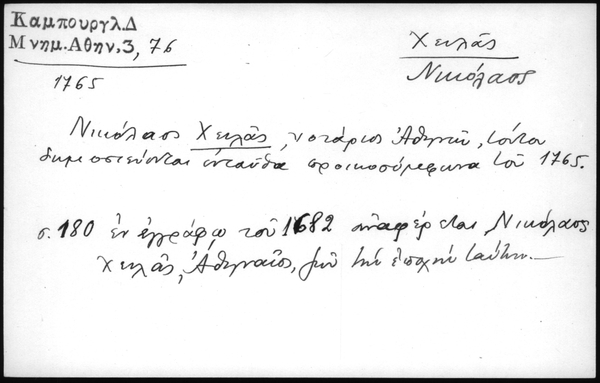 Καμπουργλ.Δ
Μνημ.Αθην.3, 76
1765
Χειλᾶς
Νικόλαος
Νικόλαος Χειλᾶς, νοτάριος Ἀθηνῶν, τούτου
δημοσιεύονται ἐνταῦθα προικοσύμφωνα τοῦ 1765.
σ. 180 ἐν ἐγγράφῳ τοῦ 1682 ἀναφέρεται Νικόλαος
Χειλᾶς, Ἀθηναῖος, ζῶν τὴν ἐποχὴν ταύτην.—